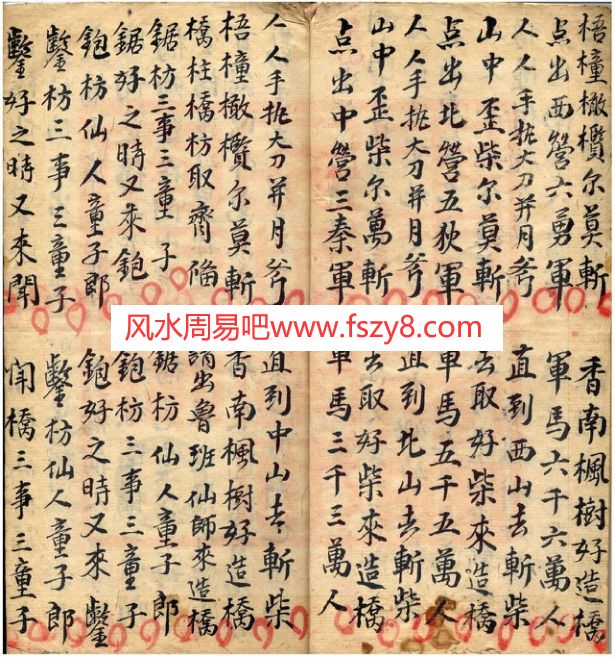 梧橦橄欖尔莫斬 香南楓樹好造橋
点出西營六勇軍 軍馬六千六萬人
人人手拖大刀并月斧 直到西山去斬柴
山中歪柴尔莫斬 去取好柴來造橋
点出北營五狄軍 軍馬五千五萬人
人人手拖大刀并月斧 直到北山去斬柴
山中歪柴尔萬斬 去取好柴來造橋
点出中營三秦軍 軍馬三千三萬人
人人手拖大刀并月斧 直到中山去斬柴
梧橦橄欖尔莫斬 香南楓樹好造橋
橋柱橋枋取齊俻 請出魯班仙師來造橋
鋸枋三事三童子 鋸枋仙人童子郎
鋸好之時又來鉋 鉋枋三事三童子
鉋枋仙人童子郎 鉋好之時又來鑿
鑿枋三事三童子 鑿枋仙人童子郎
鑿好之時又來閗 閗橋三事三童子
风水周易吧www.fszy8.com